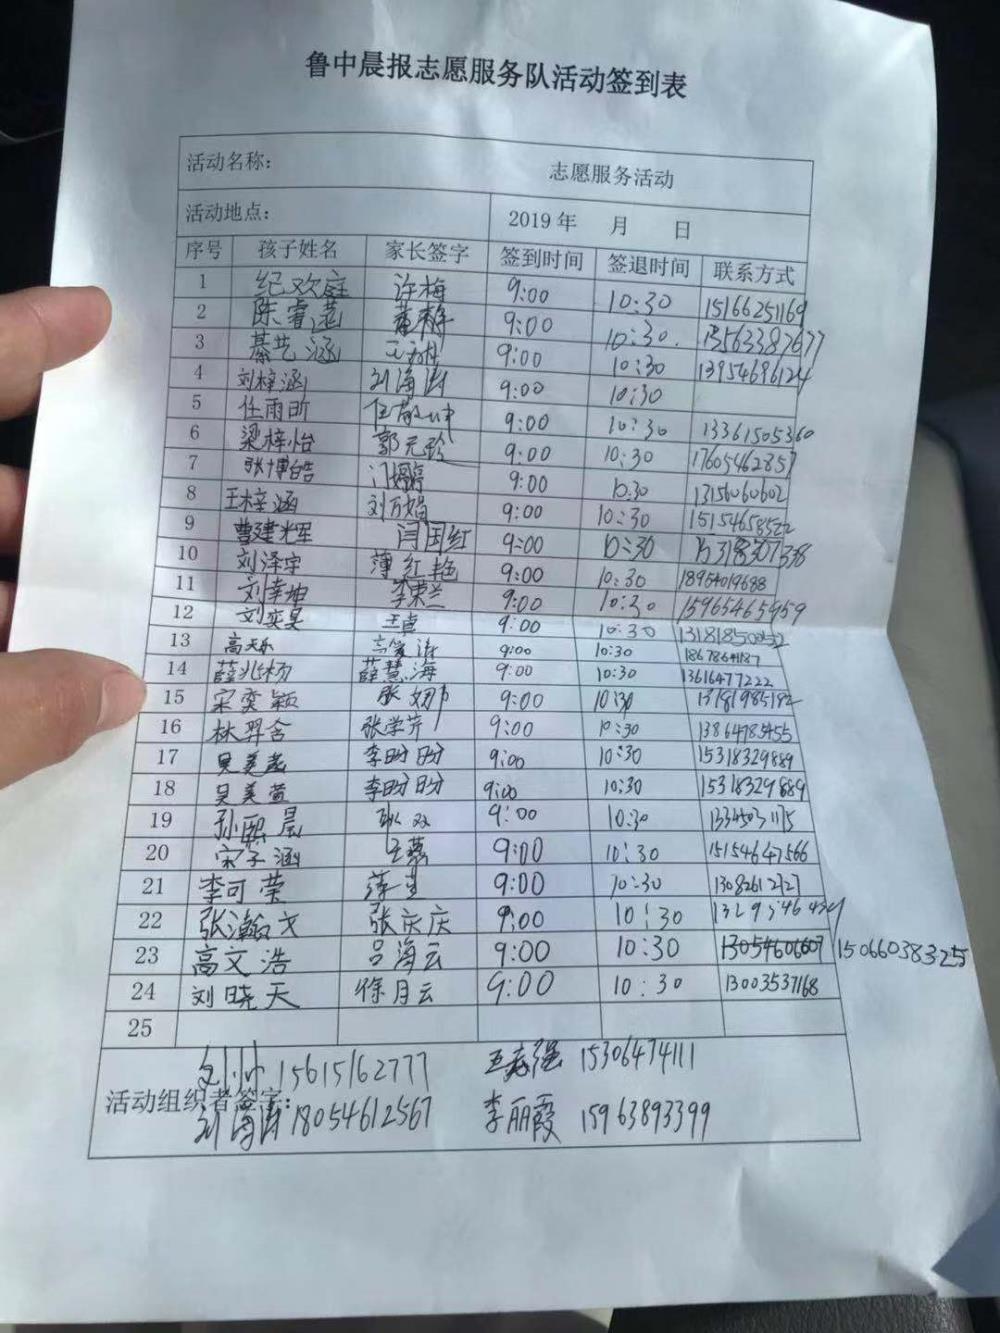 鲁中晨报志愿服务队活动签到表
活动名称： 志愿服务活动
活动地点： 2019 年 月 日
序号 孩子姓名 家长签字 签到时间 签退时间 联系方式
1 纪欢庭 许梅 9:00 10:30 15166251169
2 陈睿 9:00 10:30. 13563387677
3 綦艺涵 9:00 10:30 13954696124
4 刘梓涵 刘海涛 9:00 10:30
5 任雨昕 9:00 10:30 13361505360
6 梁梓怡 郭元珍 9:00 10:30 17605462857
7 张博皓 9:00 10:30 13156060602
8 王梓涵 刘万娟 9:00 10:30 15154658522
9 曹建辉军 闫国红 9:00 10:30
10 刘泽宇 薄红艳 9:00 10:30 18954019688
11 刘幸坤 李荣兰 9:00 10:30 15965465959
12 刘奕昊 王卓 9:00 10:30 13181850052
13 高天乐 9:00 10:30
14 薛兆杨 薛慧海 9:00 10:30 13616477222
15 宋奕颖 张 9:00 10:30 13781985182
16 林羿含 张学芹 9:00 10:30
17 吴美 李盼盼 9:00 10:30 15318329889
18 吴美萱 李盼盼 9:00 10:30 15318329889
19 孙熙晨 9:00 10:30 13345031175
20 宋子涵 9:00 10:30 15154647566
21 李可莹 9:00 10:30
22 张瀚文 张庆庆 9:00 10:30
23 高文浩 吕海云 9:00 10:30 13054606607 15066038325
24 刘晓天 徐月云 9:00 10:30 13003537168
25
刘帅 15615162777 王志强 15306474111
活动组织者签字：
刘海涛 18054612567 李丽霞 15963893399